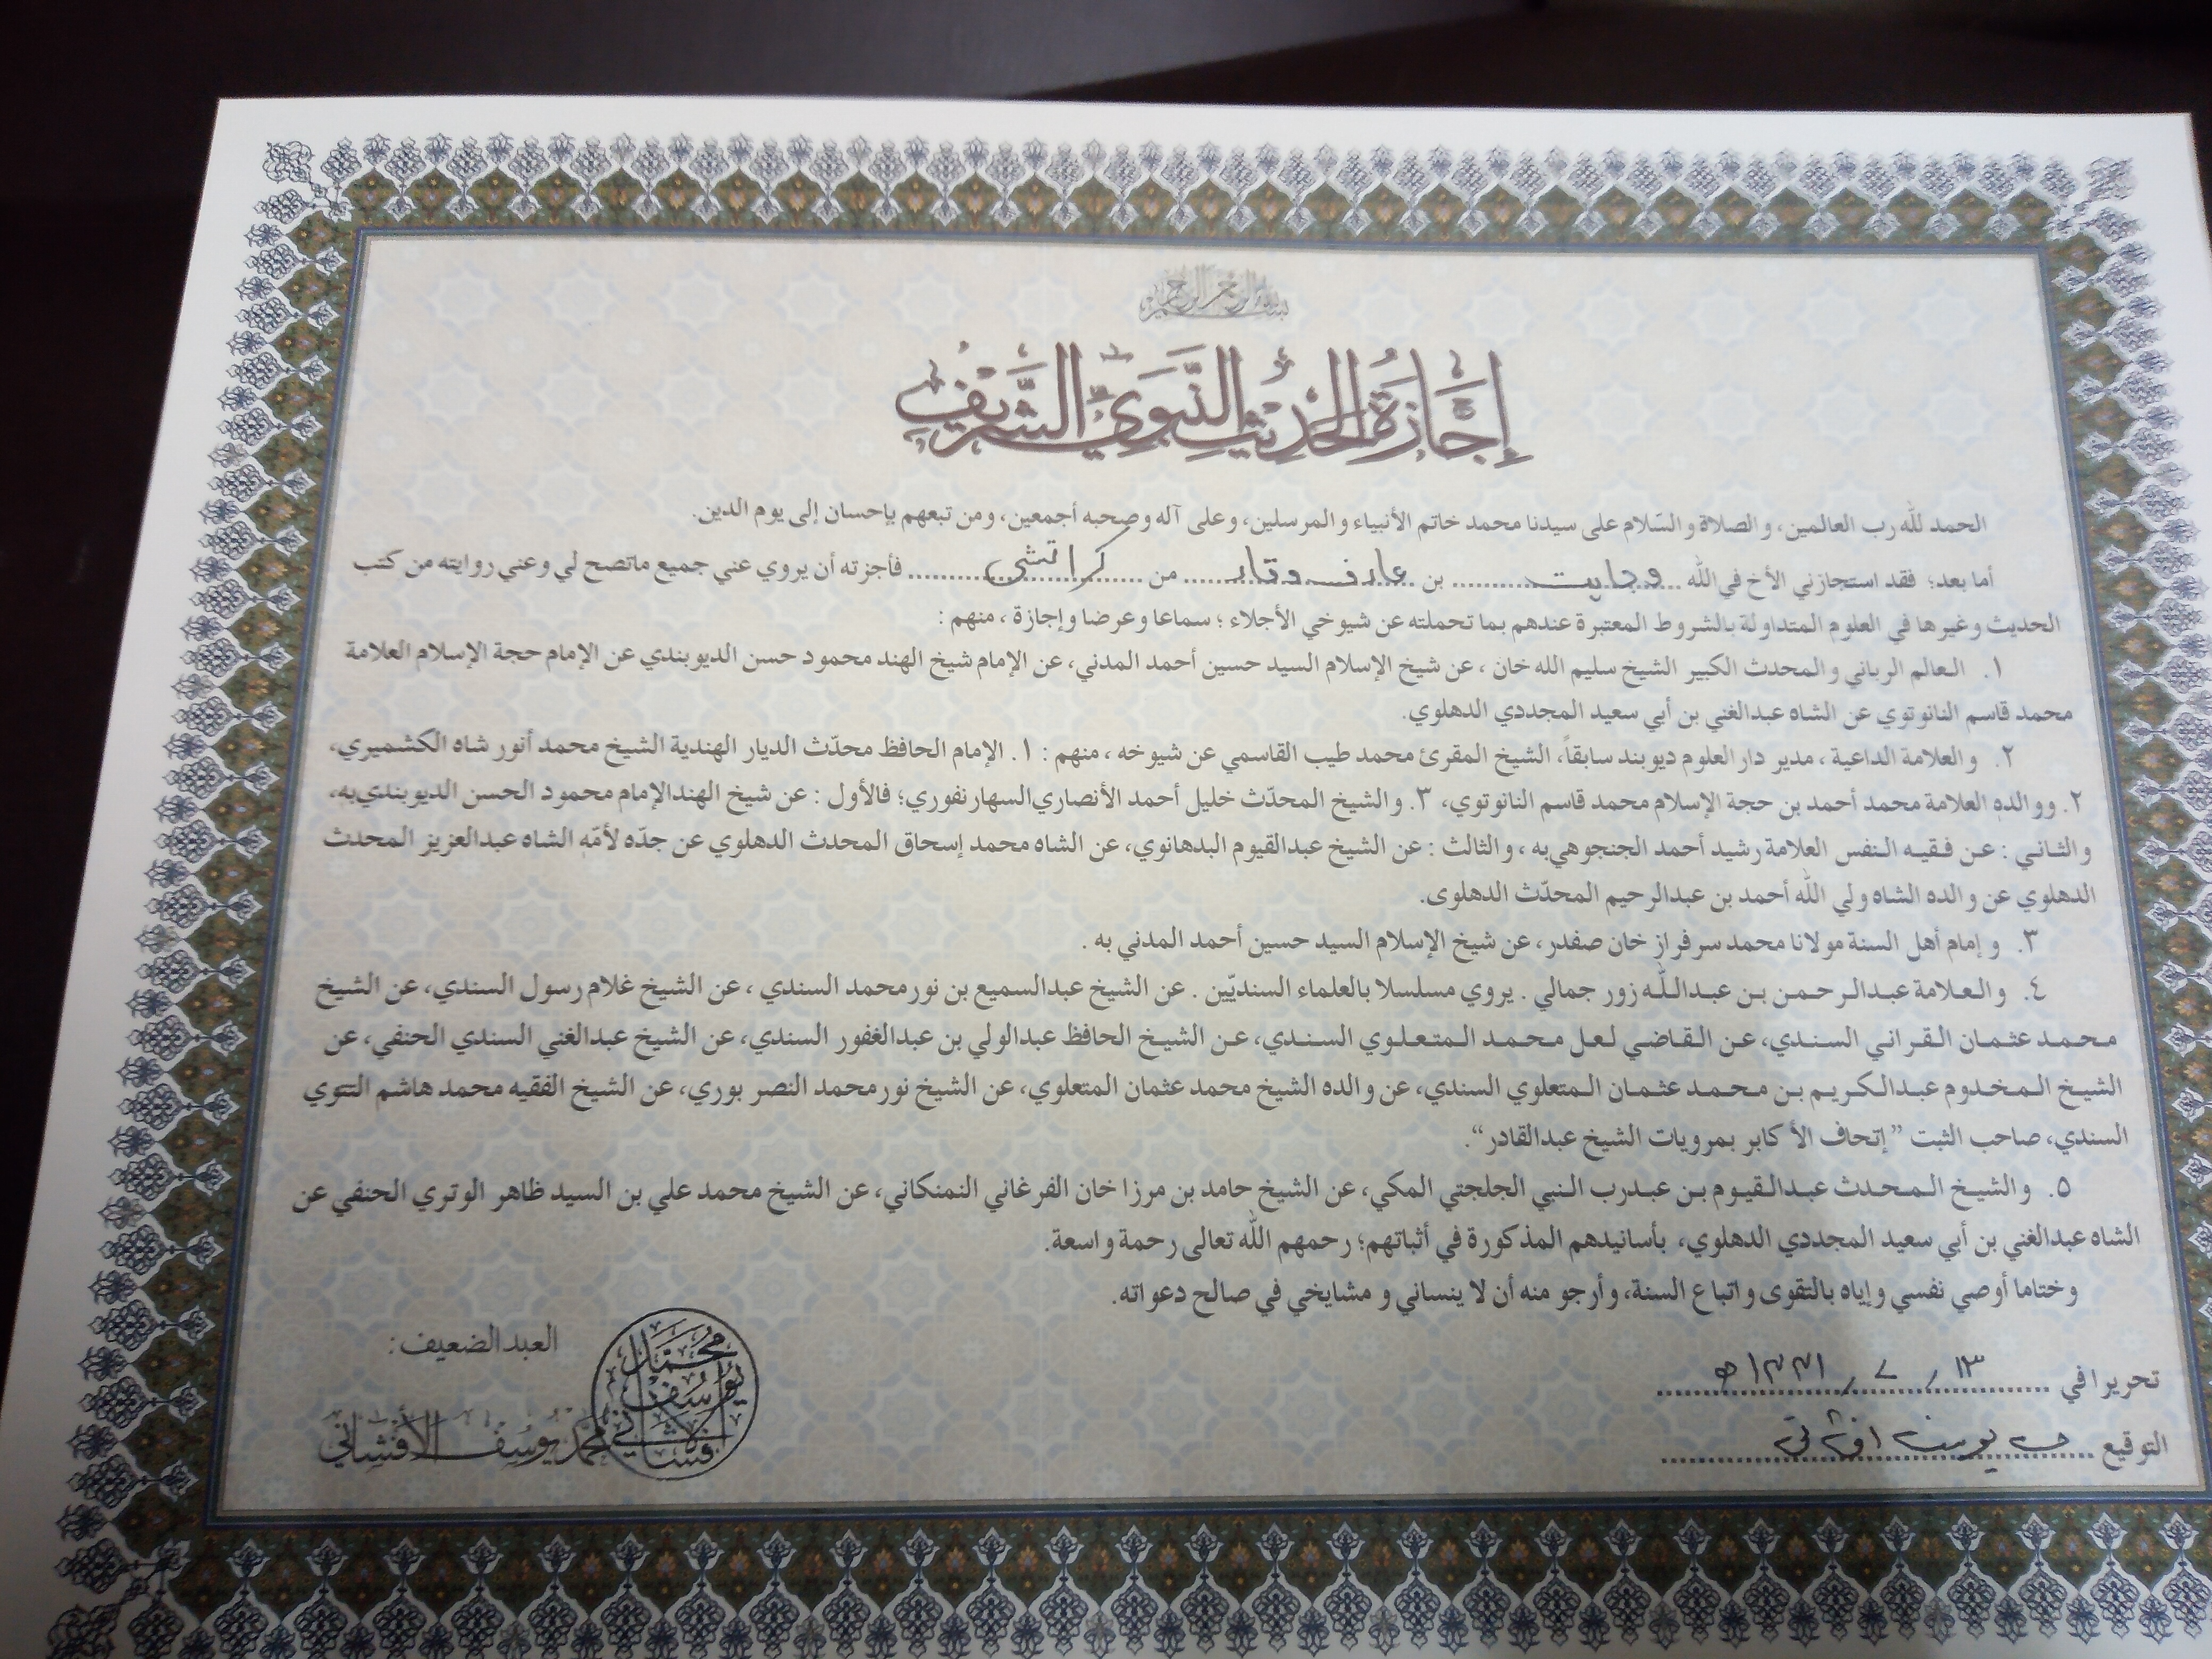 بسم الله الرحمن الرحيم
إِجَازَةُ الْحَدِيْثِ النَّبَوِيِّ الشَّرِيْفِ
الحمد لله رب العالمين، والصلاة والسّلام على سيدنا محمد خاتم الأنبياء والمرسلين، وعلى آله وصحبه أجمعين، ومن تبعهم بإحسان إلى يوم الدين.
أما بعد؛ فقد استجازني الأخ في الله وجاہت بن عارف وقار من كراتشى فأجزته أن يروي عني جميع ماتصح لي وعني روايته من كتب
الحديث وغيرها في العلوم المتداولة بالشروط المعتبرة عندهم بما تحملته عن شيوخي الأجلاء ؛ سماعا وعرضا وإجازة ، منهم :
١. العالم الرباني والمحدث الكبير الشيخ سليم الله خان ، عن شيخ الإسلام السيد حسين أحمد المدني، عن الإمام شيخ الهند محمود حسن الديوبندي عن الإمام حجة الإسلام العلامة
محمد قاسم النانوتوي عن الشاه عبدالغني بن أبي سعيد المجددي الدهلوي.
٢. والعلامة الداعية ، مدير دار العلوم ديوبند سابقاً، الشيخ المقرئ محمد طيب القاسمي عن شيوخه ، منهم : ١. الإمام الحافظ محدّث الديار الهندية الشيخ محمد أنور شاه الكشميري،
٢. ووالده العلامة محمد أحمد بن حجة الإسلام محمد قاسم النانوتوي، ٣. والشيخ المحدّث خليل أحمد الأنصاري السهارنفوري؛ فالأول : عن شيخ الهند الإمام محمود الحسن الديوبندي به،
والثاني : عن فقيه النفس العلامة رشيد أحمد الجنجوهي به ، والثالث : عن الشيخ عبدالقيوم البدهانوي، عن الشاه محمد إسحاق المحدث الدهلوي عن جدّه لأمّه الشاه عبدالعزيز المحدث
الدهلوي عن والده الشاه ولي الله أحمد بن عبدالرحيم المحدّث الدهلوى.
٣. وإمام أهل السنة مولانا محمد سرفراز خان صفدر، عن شيخ الإسلام السيد حسين أحمد المدني به .
٤. والعلامة عبدالرحمن بن عبدالله زور جمالي . يروي مسلسلا بالعلماء السنديّين . عن الشيخ عبدالسميع بن نورمحمد السندي ، عن الشيخ غلام رسول السندي، عن الشيخ
محمد عثمان القراني السندي، عن القاضي لعل محمد المتعلوي السندي، عن الشيخ الحافظ عبدالولي بن عبدالغفور السندي، عن الشيخ عبدالغني السندي الحنفي، عن
الشيخ المخدوم عبدالكريم بن محمد عثمان المتعلوي السندي، عن والده الشيخ محمد عثمان المتعلوي، عن الشيخ نورمحمد النصر بوري، عن الشيخ الفقيه محمد هاشم التتوي
السندي، صاحب الثبت ”إتحاف الأكابر بمرويات الشيخ عبدالقادر“.
٥. والشيخ المحدث عبدالقيوم بن عبدرب النبي الجلجتي المكي، عن الشيخ حامد بن مرزا خان الفرغاني النمنكاني، عن الشيخ محمد علي بن السيد ظاهر الوتري الحنفي عن
الشاه عبدالغني بن أبي سعيد المجددي الدهلوي، بأسانيدهم المذكورة في أثباتهم؛ رحمهم الله تعالى رحمة واسعة.
وختاما أوصي نفسي وإياه بالتقوى واتباع السنة، وأرجو منه أن لا ينساني و مشايخي في صالح دعواته.
تحريرا في
التوقيع يوسف افشانی
العبد الضعيف:
محمد يوسف الأفشاني
محمد يوسف افشاني